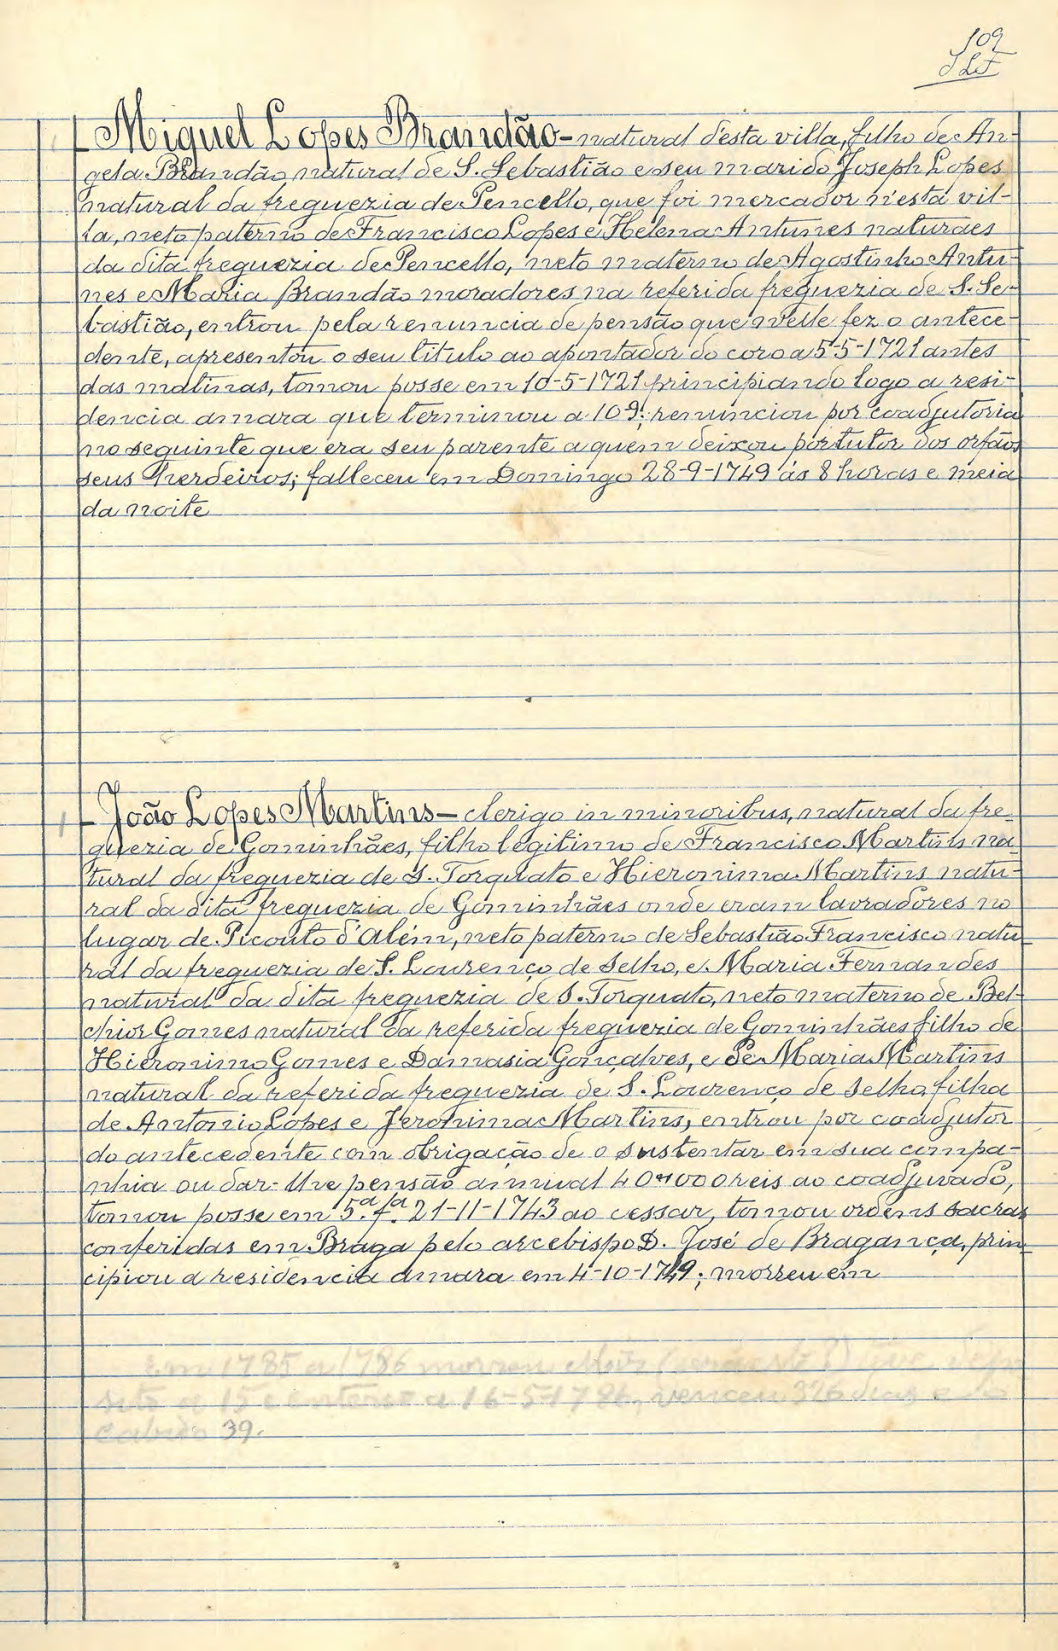 109
Miguel Lopes Brandão - natural d'esta villa, filho de An-
gela Brandão natural de S. Sebastião e seu marido Joseph Lopes
natural da freguezia de Pencello, que foi mercador n'esta vil-
la, neto paterno de Francisco Lopes e Helena Antunes naturaes
da dita freguezia de Pencello, neto materno de Agostinho Antu-
nes e Maria Brandão moradores na referida freguezia de S. Se-
bastião, entrou pela renuncia de pensão que n'elle fez o antece-
dente, apresentou o seu titulo ao apontador do coro a 5-5-1721 antes
das matinas, tomou posse em 10-5-1721 principiando logo a resi-
dencia amara que terminou a 10 9; renunciou por coadjutoria
no seguinte que era seu parente a quem deixou por tutor dos orfãos
seus herdeiros; falleceu em Domingo 28-9-1749 ás 8 horas e meia
da noite
João Lopes Martins - clerigo in minoribus, natural da fre-
guezia de Gominhães, filho legitimo de Francisco Martins na-
tural da freguezia de S. Torquato e Hieronima Martins natu-
ral da dita freguezia de Gominhães onde eram lavradores no
lugar de Picouto d'Além, neto paterno de Sebastião Francisco natu-
ral da freguezia de S. Lourenço de Selho, e Maria Fernandes
natural da dita freguezia de S. Torquato, neto materno de Bel-
chior Gomes natural da referida freguezia de Gominhães filho de
Hieronimo Gomes e Damasia Gonçalves, e de Maria Martins
natural da referida freguezia de S. Lourenço de Selho, filha
de Antonio Lopes e Jeronima Martins, entrou por coadjutor
do antecedente com obrigação de o sustentar em sua compa-
nhia ou dar-lhe pensão annual 40000 reis ao coadjuvado,
tomou posse em 5.ª f.ª 21-11-1743 ao cessar, tomou ordens sacras
conferidas em Braga pelo arcebispo D. José de Bragança, prin-
cipiou a residencia amara em 4-10-1749; morreu em
Em 1785 a 1786 morreu
a 15 e a 16-5-1786, venceu 326 dias e
cabido 39.